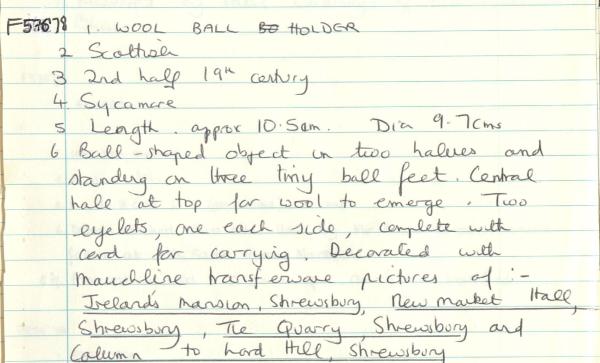 1. WOOL BALL HOLDER
2 Scottish
3 2nd half 19th century
4 Sycamore
5 Length. approx 10.5cm. Dia 9.7cms
6 Ball-shaped object in two halves and
standing on three tiny ball feet. Central
hole at top for wool to emerge. Two
eyelets, one each side, complete with
cord for carrying. Decorated with
mauchline transferware pictures of :-
Ireland's mansion, Shrewsbury, New market Hall,
Shrewsbury, The Quarry, Shrewsbury and
Column to Lord Hill, Shrewsbury